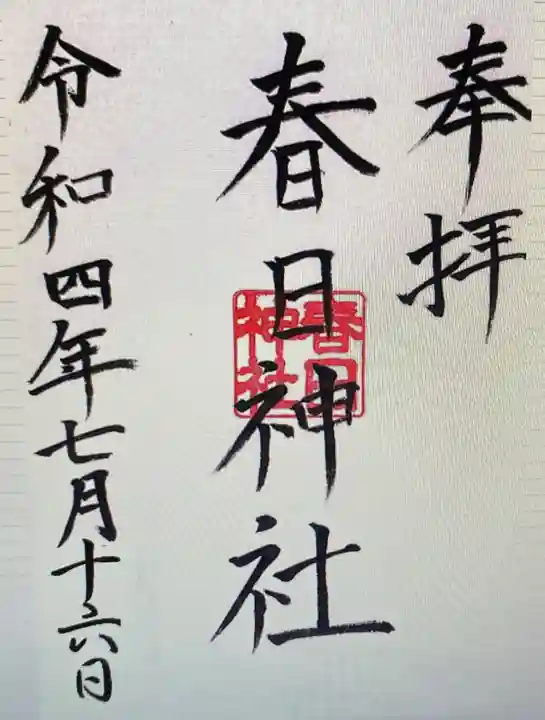 奉拝
春日神社
春日神社
令和四年七月十六日